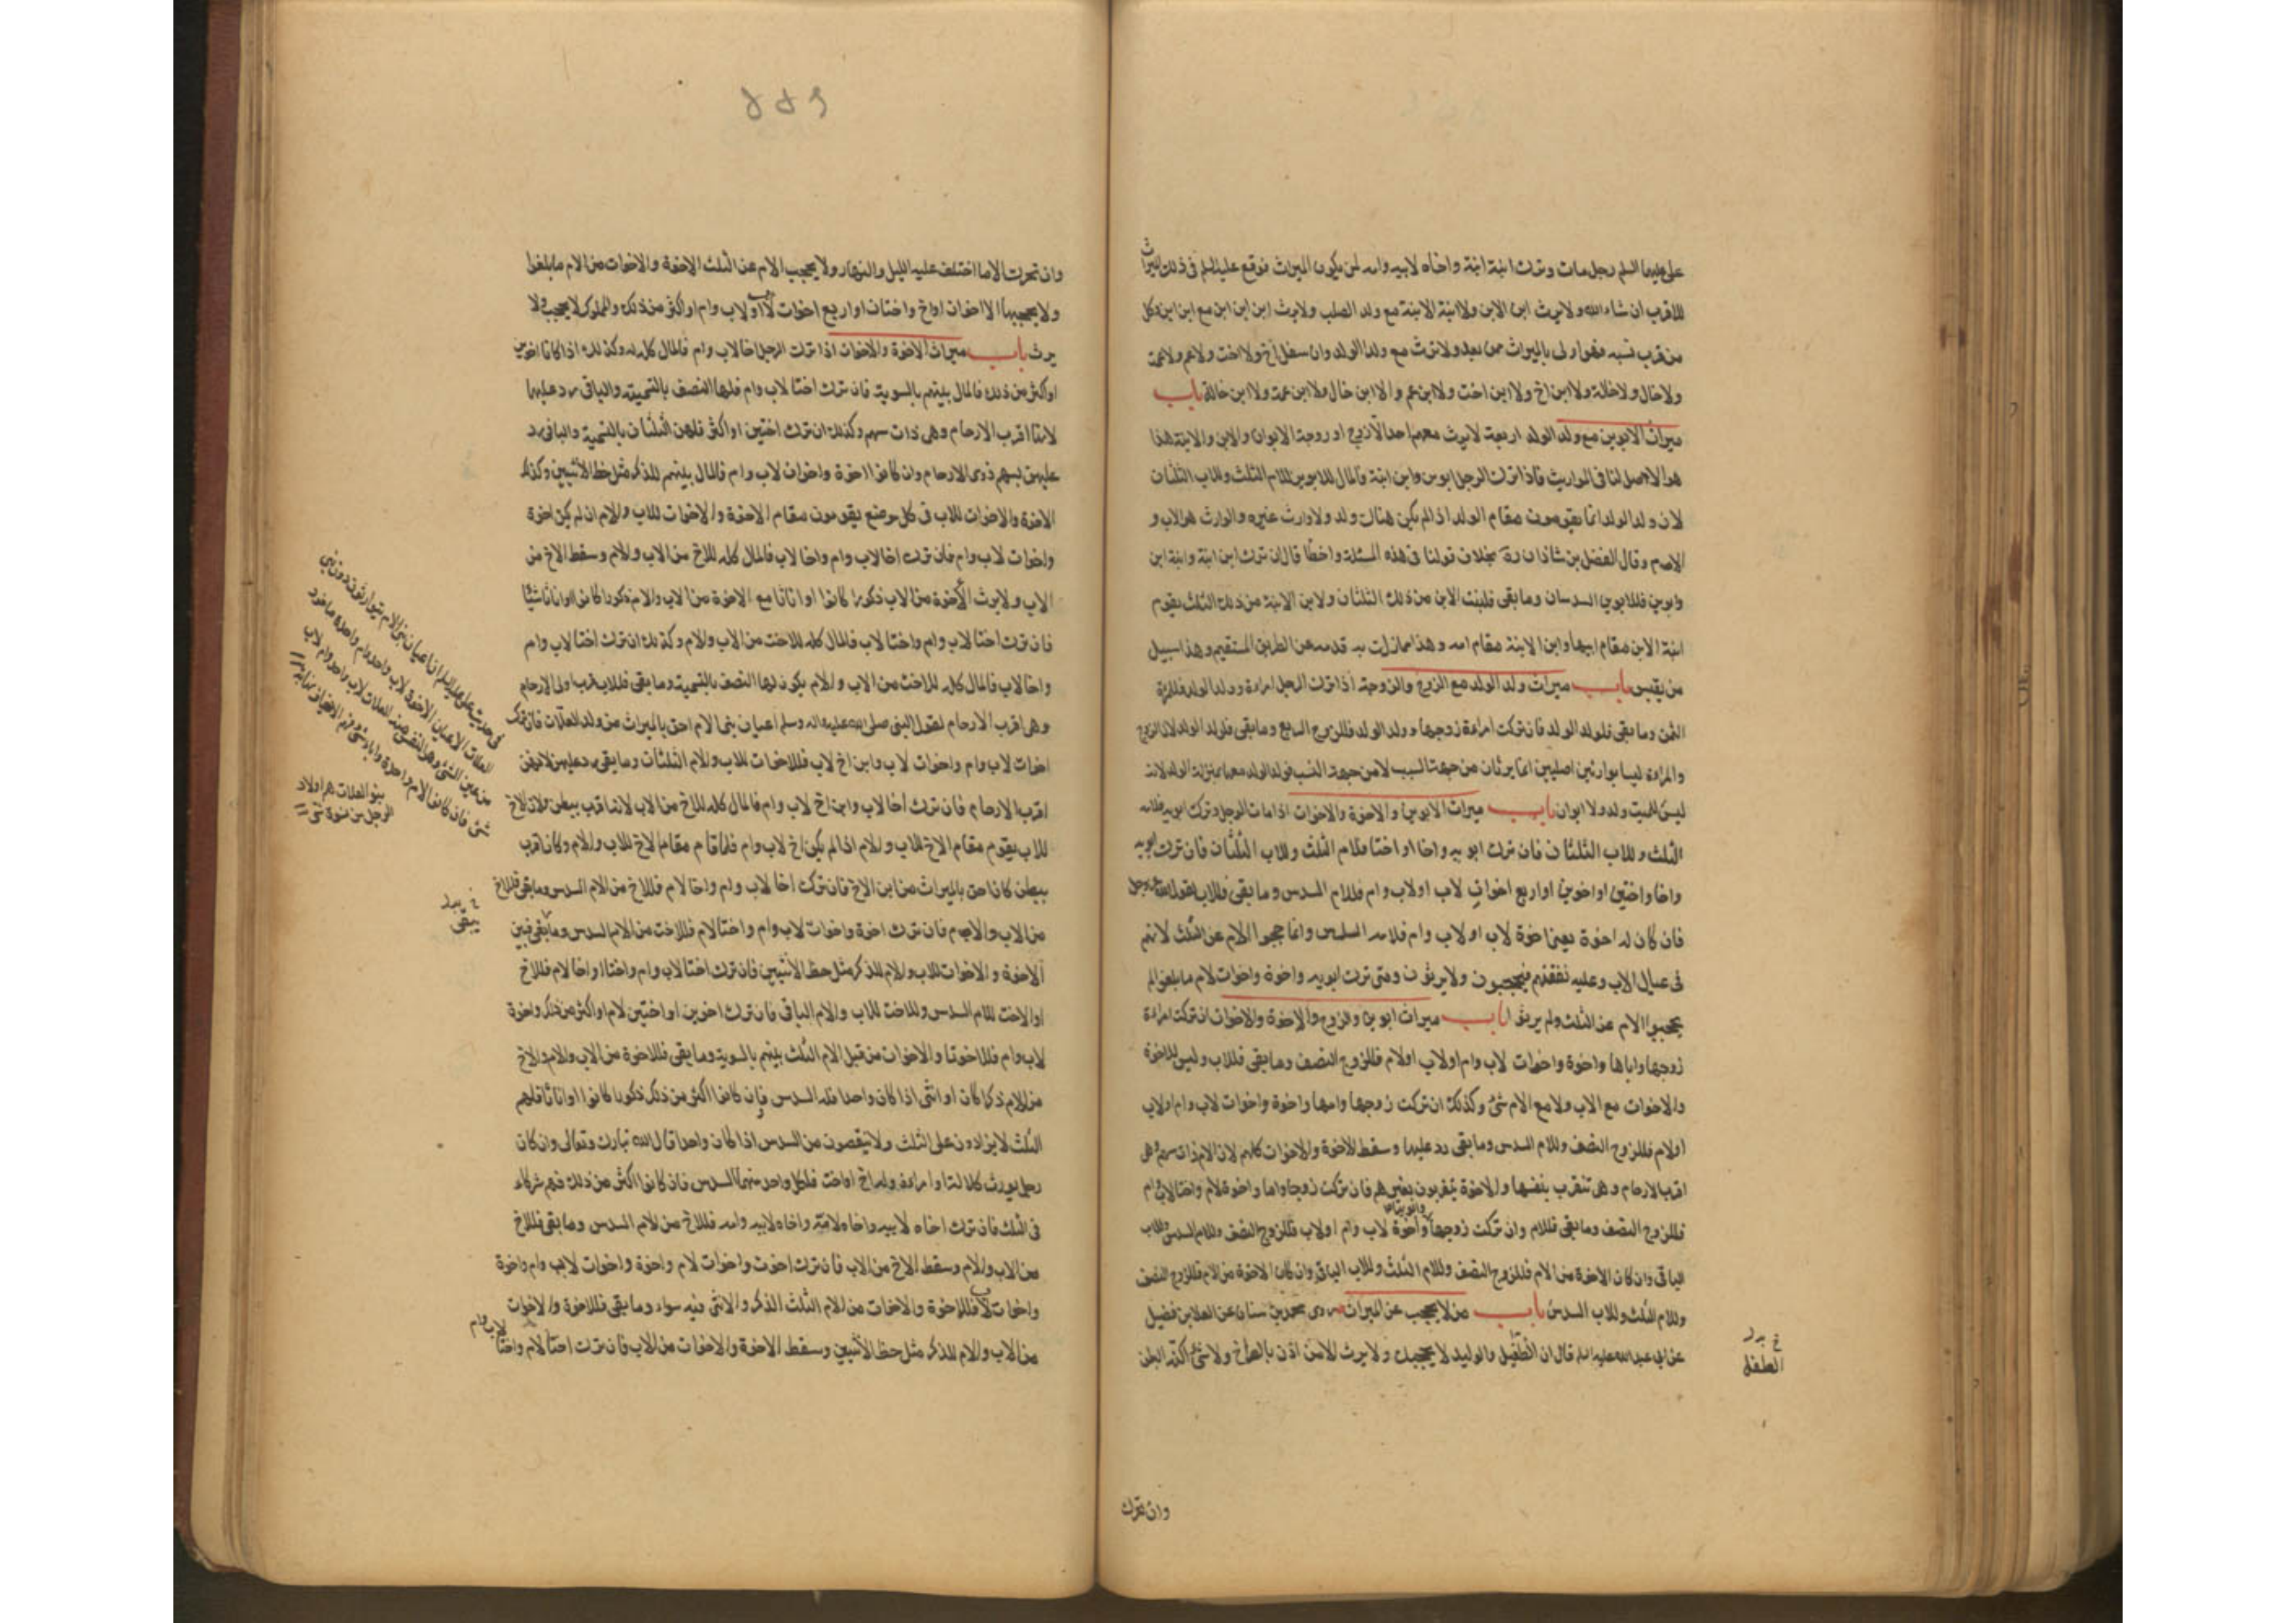 على عليهما السلم رجل مات وترك ابنة ابنة واخاه لابيه وامه لمن يكون الميراث فوقع عليه السلم فى ذلك الميراث
للاقرب ان شاء الله ولا يرث ابن الابن ولا ابنة الابنة مع ولد الصلب ولا يرث ابن ابن ابن مع ابن ابن وكل
من قرب نسبه فهو اولى بالميراث ممن بعد ولا يرث مع ولد الولد وان سفل اخ ولا اخت ولا عم ولا عمة
ولا خال ولا خالة ولا ابن اخ ولا ابن اخت ولا ابن عم ولا ابن خال ولا ابن عمة ولا ابن خالة باب
ميراث الابوين مع ولد الولد اربعة لا يرث معهم احد الا زوج او زوجة الابوان والابن والابنة هذا
هو الاصل لنا فى المواريث فاذا ترك الرجل ابوين وابن ابنة فالمال للابوين للام الثلث وللاب الثلثان
لان ولد الولد انما يقومون مقام الولد اذا لم يكن هناك ولد ولا وارث غيره والوارث هو الاب و
الام وقال الفضل بن شاذان ره بخلاف قولنا فى هذه المسئلة واخطا قال ان ترك ابن ابنة وابنة ابن
وابوين فللابوين السدسان وما بقى فلبنت الابن من ذلك الثلثان ولابن الابنة من ذلك الثلث يقوم
ابنة الابن مقام ابيها وابن الابنة مقام امه وهذا مما زلت به قدمه عن الطريق المستقيم وهذا سبيل
من يقيس باب ميراث ولد الولد مع الزوج والزوجة اذا ترك الرجل امراءة وولد الولد فللمراة
الثمن وما بقى فلولد الولد فان تركت امراءة زوجها وولد الولد فللزوج الربع وما بقى فلولد الولد لان الزوج
والمراءة ليسا بوارثين اصليين انما يرثان من جهة السبب لا من جهة النسب فولد الولد معهما بمنزلة الولد لانه
ليس للميت ولد ولا ابوان باب ميراث الابوين والاخوة والاخوات اذا مات الرجل وترك ابويه فلامه
الثلث وللاب الثلثان فان ترك ابويه واخا او اختا فللام الثلث وللاب الثلثان فان ترك ابويه
واخا واختين او اخوين او اربع اخوات لاب او لاب وام فللام السدس وما بقى فللاب لقوله عز وجل
فان كان له اخوة يعنى اخوة لاب او لاب وام فلامه السدس وانما حجبوا الام عن الثلث لانهم
فى عيال الاب وعليه نفقتهم فيحجبون ولا يرثون ومتى ترك ابويه واخوة واخوات لام ما بلغوا لم
يحجبوا الام عن الثلث ولم يرثوا باب ميراث ابوين والزوج والاخوة والاخوات ان تركت امراءة
زوجها واباها واخوة واخوات لاب وام او لاب او لام فللزوج النصف وما بقى فللاب وليس للاخوة
والاخوات مع الاب ولا مع الام شئ وكذلك ان تركت زوجها وامها واخوة واخوات لاب وام او لاب
او لام فللزوج النصف وللام السدس وما بقى رد عليها وسقط الاخوة والاخوات كلهم لان الام ذات سهم وهى
اقرب الارحام وهى تتقرب بنفسها والاخوة يتقربون بغيرهم فان تركت زوجا واما واخوة لام واختا لاب وام
فللزوج النصف وما بقى فللام وان تركت زوجها وابويها واخوة لاب وام او لاب فللزوج النصف وللام السدس وللاب
الباقى وان كان الاخوة من الام فللزوج النصف وللام الثلث وللاب الباقى وان كان الاخوة من الام فللزوج النصف
وللام الثلث وللاب السدس باب من لا يحجب عن الميراث روى محمد بن سنان عن العلا بن فضيل
عن ابى عبد الله عليه السلم قال ان الطفيل والوليد لا يحجبك ولا يرث الا من اذن بالصراخ ولا شئ اكنه البطن
خ بدل
الطفل
وان تحرك
وان تحرك الا ما اختلف عليه الليل والنهار ولا يحجب الام عن الثلث الاخوة والاخوات من الام ما بلغوا
ولا يحجبها الا اخوان او اخ واختان او اربع اخوات لاب او لاب وام او اكثر من ذلك والمملوك لا يحجب ولا
يرث باب ميراث الاخوة والاخوات اذا ترك الرجل اخا لاب وام فالمال كله له وكذلك اذا كانا اخوين
او اكثر من ذلك فالمال بينهم بالسوية فان ترك اختا لاب وام فلها النصف بالتسمية والباقى رد عليها
لانها اقرب الارحام وهى ذات سهم وكذلك ان ترك اختين او اكثر فلهن الثلثان بالتسمية والباقى يرد
عليهن بسهم ذوى الارحام وان كانوا اخوة واخوات لاب وام فالمال بينهم للذكر مثل حظ الانثيين وكذلك
الاخوة والاخوات للاب فى كل موضع يقومون مقام الاخوة والاخوات للاب والام ان لم يكن اخوة
واخوات لاب وام فان ترك اخا لاب وام واخا لاب فالمال كله للاخ من الاب والام وسقط الاخ من
الاب ولا يرث الاخوة من الاب ذكورا كانوا او اناثا مع الاخوة من الاب والام ذكورا كانوا او اناثا شيئا
فان ترك اختا لاب وام واختا لاب فالمال كله للاخت من الاب والام وكذلك ان ترك اختا لاب وام
واخا لاب فالمال كله للاخت من الاب والام يكون لها النصف بالتسمية وما بقى فلاقرب اولى الارحام
وهى اقرب الارحام لقول النبى صلى الله عليه واله وسلم اعيان بنى الام احق بالميراث من ولد العلات فان ترك
اخوات لاب وام واخوات لاب وابن اخ لاب فللاخوات للاب والام الثلثان وما بقى رد عليهن لانهن
اقرب الارحام فان ترك اخا لاب وابن اخ لاب وام فالمال كله للاخ من الاب لانه اقرب ببطن ولان الاخ
للاب يقوم مقام الاخ للاب والام اذا لم يكن اخ لاب وام فلما قام مقام الاخ للاب والام وكان اقرب
ببطن كان احق بالميراث من ابن الاخ فان ترك اخا لاب وام واخا لام فللاخ من الام السدس وما بقى فللاخ
من الاب والام فان ترك اخوة واخوات لاب وام واختا لام فللاخت من الام السدس وما بقى فبين
الاخوة والاخوات للاب والام للذكر مثل حظ الانثيين فان ترك اختا لاب وام واختا او اخا لام فللاخ
او الاخت للام السدس وللاخت للاب والام الباقى فان ترك اخوين او اختين لام او اكثر من ذلك واخوة
لاب وام فللاخوة والاخوات من قبل الام الثلث بينهم بالسوية وما بقى فللاخوة من الاب والام والاخ
من الام ذكرا كان او انثى اذا كان واحدا فله السدس فان كانوا اكثر من ذلك ذكورا كانوا او اناثا فلهم
الثلث لا يزادون على الثلث ولا ينقصون من السدس اذا كان واحدا قال الله تبارك وتعالى وان كان
رجل يورث كلالة او امراءة وله اخ او اخت فلكل واحد منهما السدس فان كانوا اكثر من ذلك فهم شركاء
فى الثلث فان ترك اخاه لابيه واخاه لامه واخاه لابيه وامه فللاخ من الام السدس وما بقى فللاخ
من الاب والام وسقط الاخ من الاب فان ترك اخوة واخوات لام واخوة واخوات لاب وام واخوة
واخوات لاب فللاخوة والاخوات من الام الثلث الذكر والانثى فيه سواء وما بقى فللاخوة والاخوات
من الاب والام للذكر مثل حظ الانثيين وسقط الاخوة والاخوات من الاب فان ترك اختا لام واختا لاب وام
فى حديث على عليه السلم ان اعيان بنى الام يتوارثون دون بنى
العلات الاعيان الاخوة لاب واحد وام واحدة ماخوذ
من عين الشئ وهو النفيس منه
بنو العلات هم اولاد
الرجل من نسوة شتى
خ بدل
يبقى